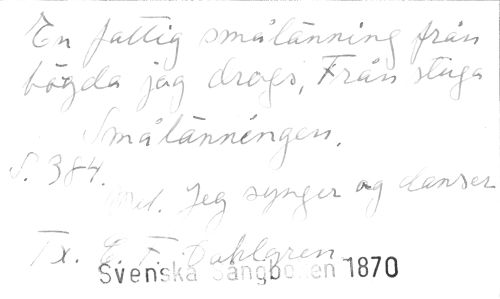 En fattig smålänning från
bögda jag drogs, Från stuga
Smålänningen.
S. 384.
Mel. Jeg synger og danser
Tx. C. F. Dahlgren
Svenska Sångboken 1870